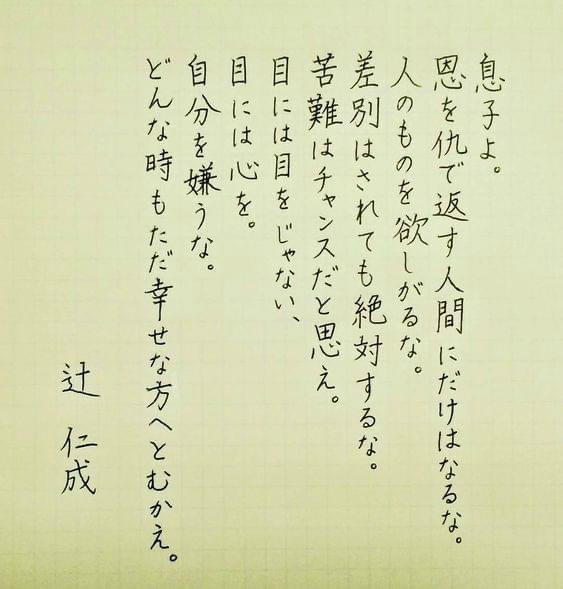 息子よ。
恩を仇で返す人間にだけはなるな。
人のものを欲しがるな。
差別はされても絶対するな。
苦難はチャンスだと思え。
目には目をじゃない、
目には心を。
自分を嫌うな。
どんな時もただ幸せな方へとむかえ。
辻 仁成